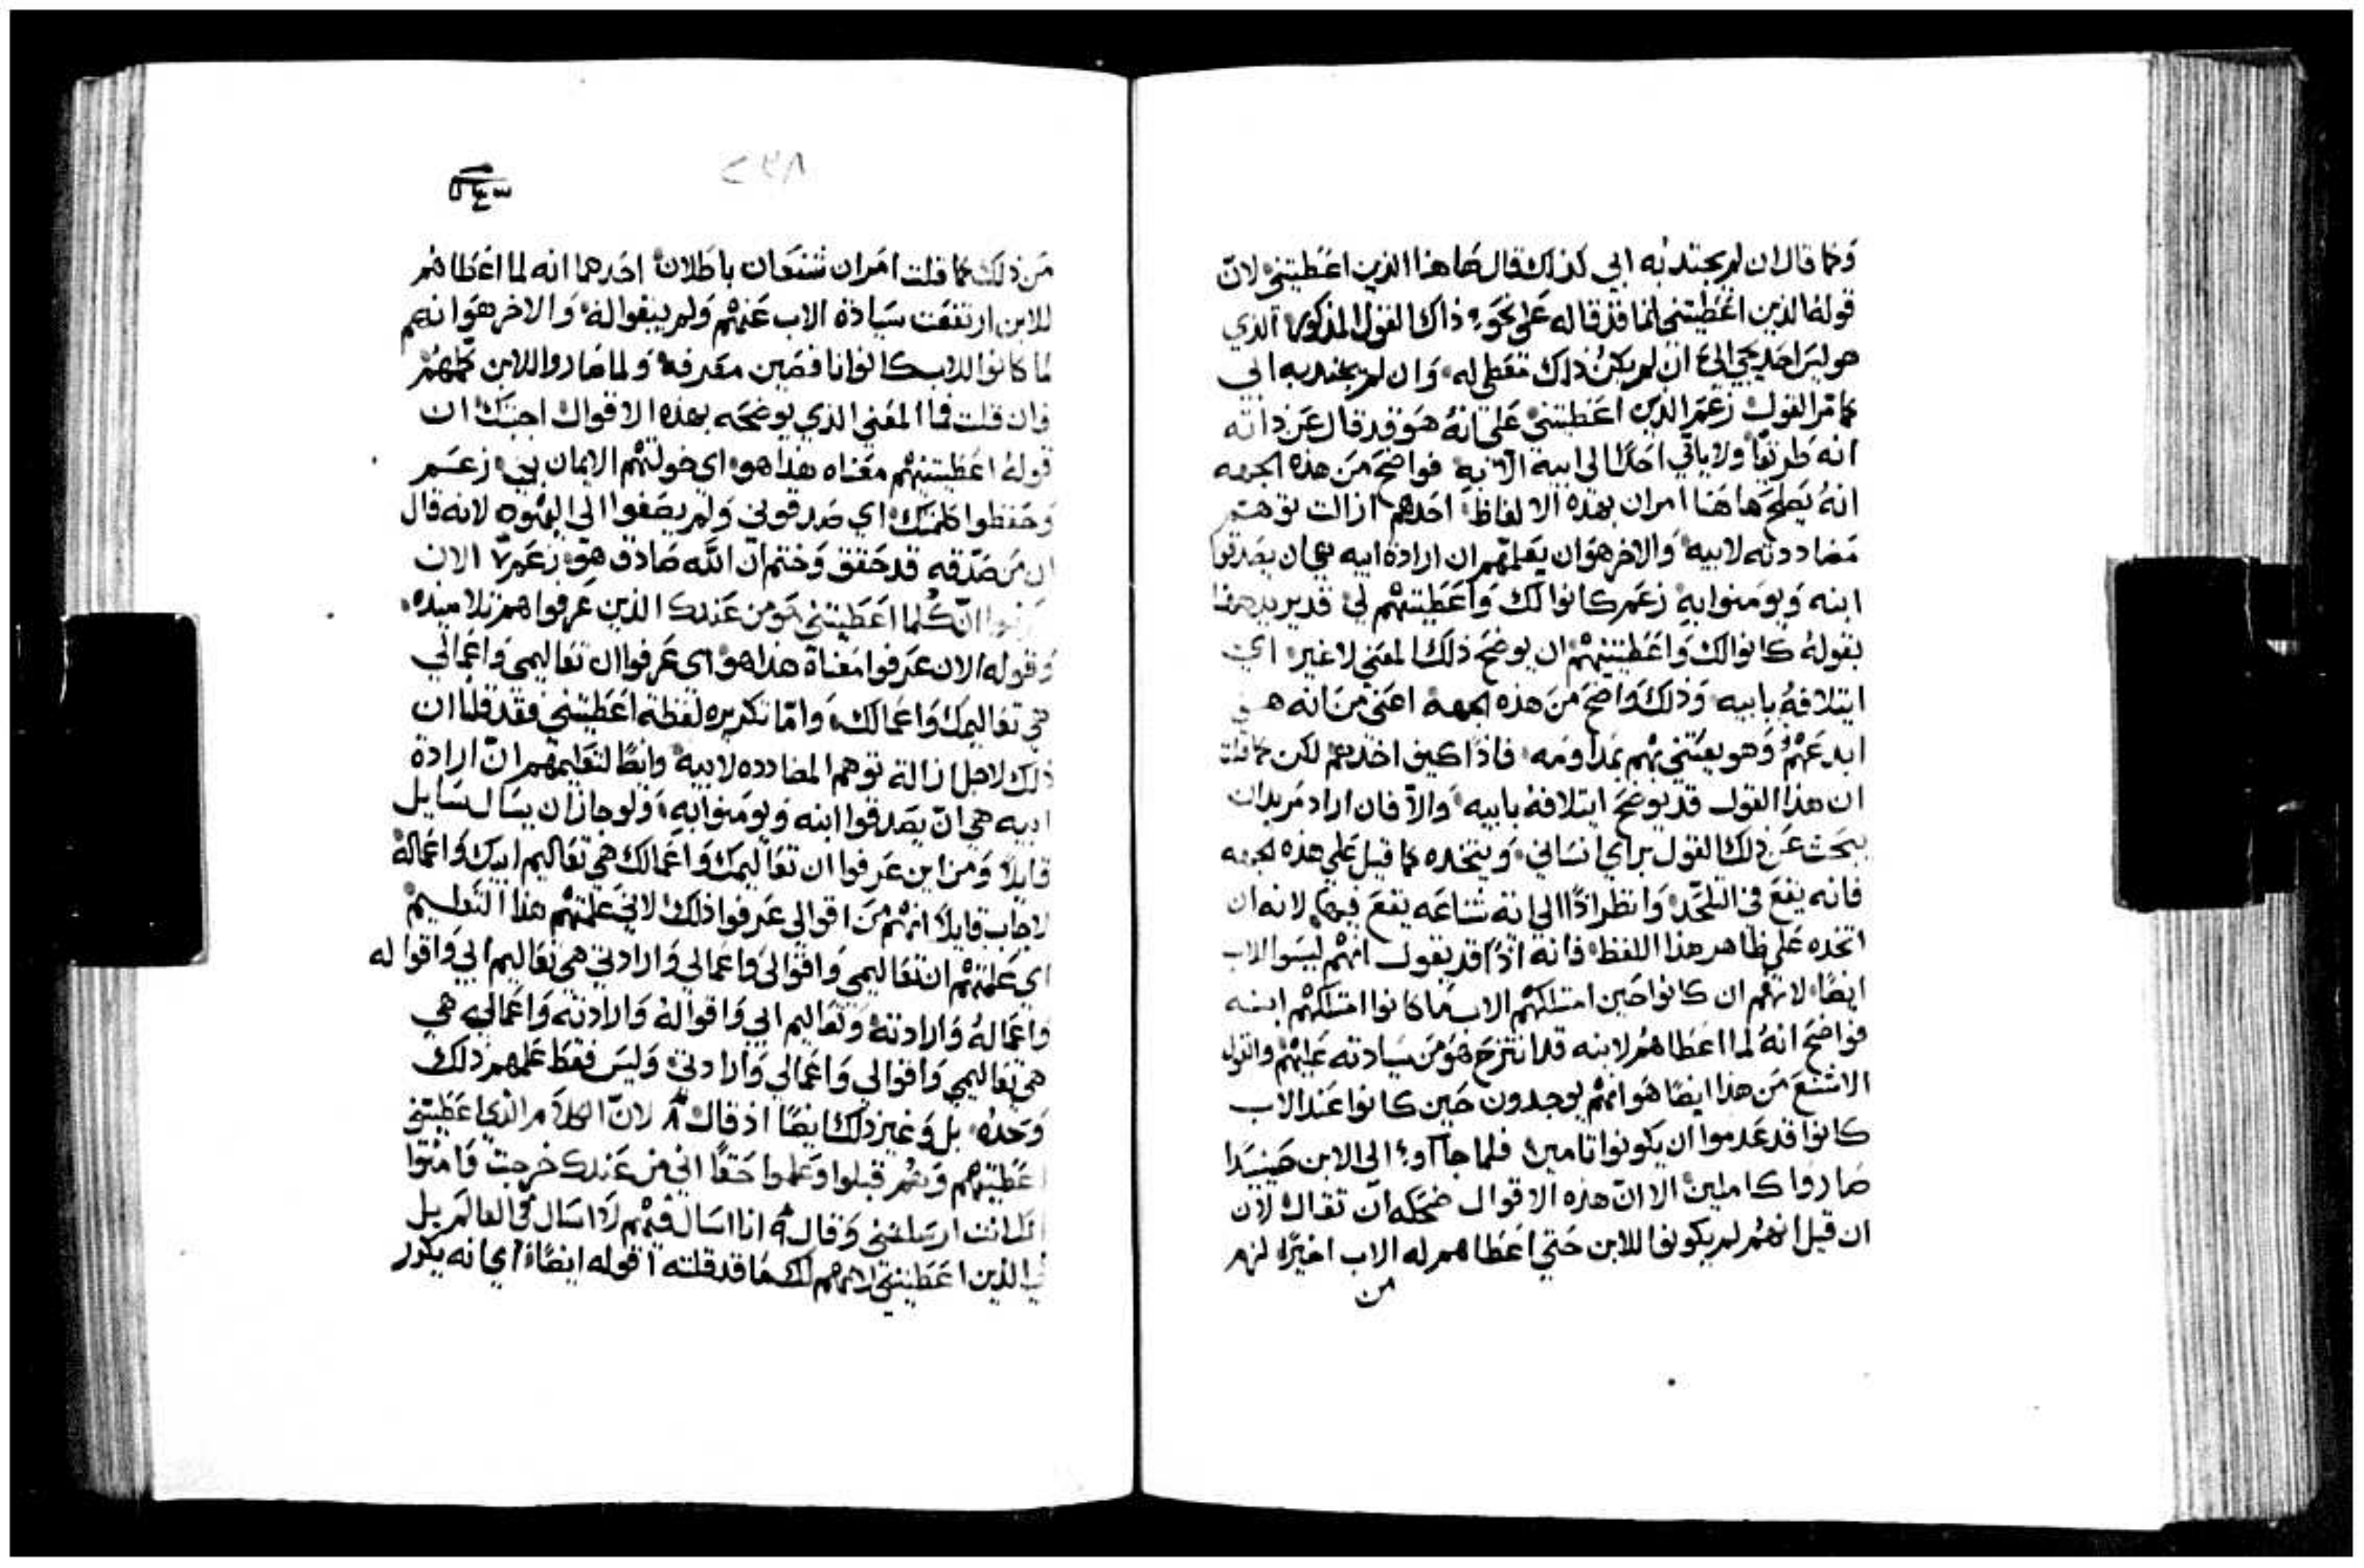 وكما قال ان لم يجتذبه ابي كذلك قال هاهنا الذين اعطيتني لانّ
قوله الذين اعطيتني انما قد قاله على نحو ذاك القول المذكور الذي
هو ليس احد يجي اليّ ان لم يكن ذلك معطي له وان لم يجتذبه ابي
كما مرّ القول زعم الذين اعطيتني على انه هو قد قال عن ذاته
انه طريقًا ولا ياتي احدًا الى ابيه الّا به فواضح من هذه الجهه
انه يصلح هاهنا امران بهذه الالفاظ احدهم ازالت توهم
مضاددته لابيه والاخر هو ان يعلمهم ان ارادة ابيه هي ان يصدقوا
ابنه ويومنوا به زعم كانوا لك واعطيتهم لي قد يريد هنا
بقوله كانوا لك واعطيتنيهم ان يوضح ذلك المعني لا غير اي
ايتلافه بابيه وذلك واضح من هذه الجهه اعني من انه هو
ابدعهم وهو يعتني بهم بمداومه فاذًا كيف اخذهم لكن كما قلت
ان هذا القول قد يوضح ايتلافه بابيه والّا فان اراد مريد ان
يبحث عن ذلك القول براي انساني ويتخذه كما قيل على هذه الجهه
فانه يقع في التلحّد وانظر اذًا الى انه شناعه يقع فيها لانه ان
اتخذه على ظاهر هذا اللفظ فانه اذًا قد يقول انهم ليسوا للاب
ايضًا لانهم ان كانوا حين امتلكهم الاب ما كانوا امتلكهم ابنه
فواضح انه لما اعطاهم لابنه قد انتزح هو من سيادته عليهم والقول
الاشنع من هذا ايضًا هو انهم يوجدون حين كانوا عند الاب
كانوا قد عدموا ان يكونوا تامين فلما جآاوا الى الابن حينيذا
صاروا كاملين الا انّ هذه الاقوال ضحكه ان تقال لان
ان قيل انهم لم يكونوا للابن حتي اعطاهم له الاب اخيرًا لزم
من
من ذلك كما قلت امران شنعان باطلان احدهما انه لما اعطاهم
للابن ارتفعت سيادة الاب عنهم ولم يبقوا له والاخر هو انهم
لما كانوا للاب كانوا ناقصين معرفه ولما صاروا للابن كملهم
فان قلت فما المعني الذي يوضحه بهذه الاقوال اجبتك ان
قوله اعطيتنيهم معناه هذا هو اي خولتهم الايمان بي زعم
وحفظوا كلمتك اي صدقوني ولم يصغوا الى اليهود لانه قال
ان من صدّقه قد حقق وختم انّ الله صادق هو زعم ٧ الان
عرفوا انّ كلما اعطيتني هو من عندك الذين عرفوا هم تلاميذه
وقوله الان عرفوا معناه هذا هو اي عرفوا ان تعاليمي واعمالي
هي تعاليمك واعمالك وامّا تكريره لفظة اعطيتني فقد قلنا ان
ذلك لاجل ازالة توهم المضادده لابيه وايضًا لتعليمهم انّ ارادة
ابيه هي انّ يصدقوا ابنه ويومنوا به ولو جاز ان يسال سايل
قايلًا ومن اين عرفوا ان تعاليمك واعمالك هي تعاليم ابيك واعماله
لاجاب قايلًا انهم من اقوالي عرفوا ذلك لاني علمتهم هذا التعليم
اي علمتهم ان تعاليمي واقوالي واعمالي وارادتي هي تعاليم ابي واقواله
واعماله وارادته وتعاليم ابي واقواله وارادته واعماله هي
هي تعاليمي واقوالي واعمالي وارادتي وليس فقط علمهم ذلك
وحده بل وغير ذلك ايضًا اذ قال ٨ لانّ الكلام الذي اعطيتني
اعطيتهم وهم قبلوا وعلموا حقًا اني من عندك خرجت وامنوا
انك انت ارسلتني وقال ٩ انا اسال فيهم لا اسال في العالم بل
في الذين اعطيتني لانهم لك ما قد قلته اقوله ايضًا اي انه يكرر